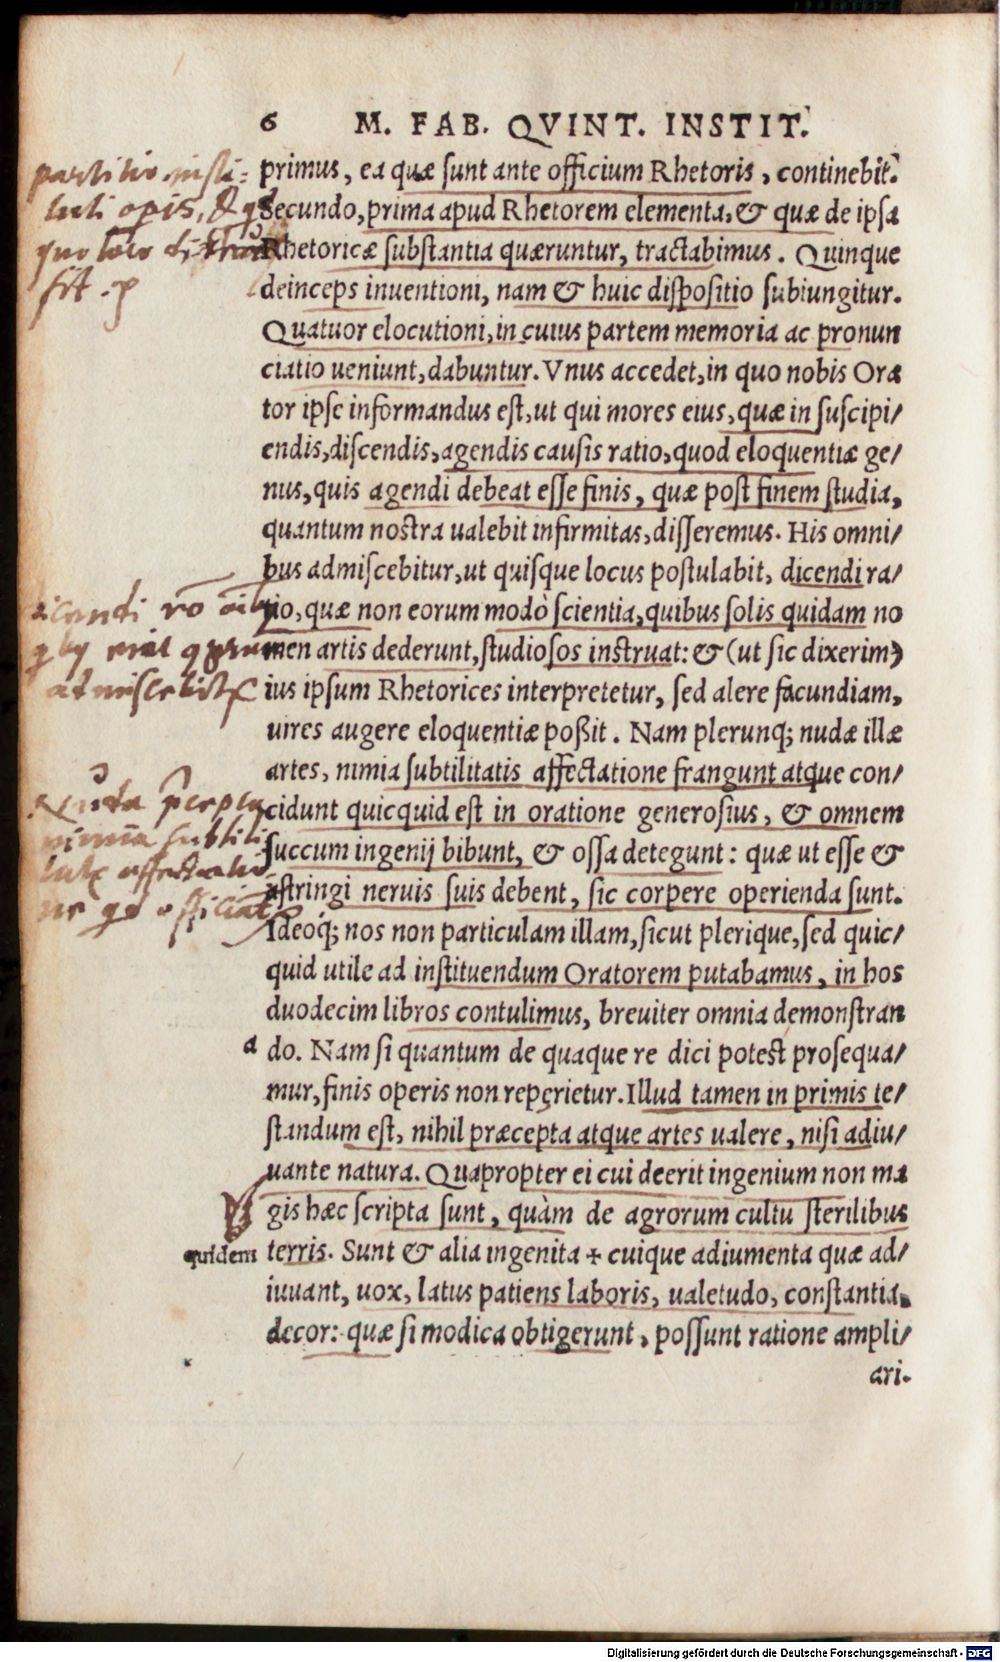 6 M. FAB. QVINT. INSTIT.
primus, ea quæ sunt ante officium Rhetoris, continebit.
Secundo, prima apud Rhetorem elementa, & quæ de ipsa
Rhetoricæ substantia quæruntur, tractabimus. Quinque
deinceps inuentioni, nam & huic dispositio subiungitur.
Quatuor elocutioni, in cuius partem memoria ac pronun
ciatio ueniunt, dabuntur. Vnus accedet, in quo nobis Ora
tor ipse informandus est, ut qui mores eius, quæ in suscipi/
endis, discendis, agendis causis ratio, quod eloquentiæ ge/
nus, quis agendi debeat esse finis, quæ post finem studia,
quantum nostra ualebit infirmitas, disseremus. His omni/
bus admiscebitur, ut quisque locus postulabit, dicendi ra/
tio, quæ non eorum modò scientia, quibus solis quidam no
men artis dederunt, studiosos instruat: & (ut sic dixerim)
ius ipsum Rhetorices interpretetur, sed alere facundiam,
uires augere eloquentiæ poßit. Nam plerunq; nudæ illæ
artes, nimia subtilitatis affectatione frangunt atque con/
cidunt quicquid est in oratione generosius, & omnem
succum ingenij bibunt, & ossa detegunt: quæ ut esse &
astringi neruis suis debent, sic corpere operienda sunt.
Ideoq́; nos non particulam illam, sicut plerique, sed quic/
quid utile ad instituendum Oratorem putabamus, in hos
duodecim libros contulimus, breuiter omnia demonstran
a do. Nam si quantum de quaque re dici potest prosequa/
mur, finis operis non reperietur. Illud tamen in primis te/
standum est, nihil præcepta atque artes ualere, nisi adiu/
uante natura. Quapropter ei cui deerit ingenium non ma
gis hæc scripta sunt, quàm de agrorum cultu sterilibus
quidem terris. Sunt & alia ingenita + cuique adiumenta quæ ad/
iuuant, uox, latus patiens laboris, ualetudo, constantia,
decor: quæ si modica obtigerunt, possunt ratione ampli/
ari.
partitio insti=
tuti opis, &
quo loco
sit
dicendi rõ
admiscebit
nuda
nimia subtili
tatis affectatio
ne
Digitalisierung gefördert durch die Deutsche Forschungsgemeinschaft - DFG